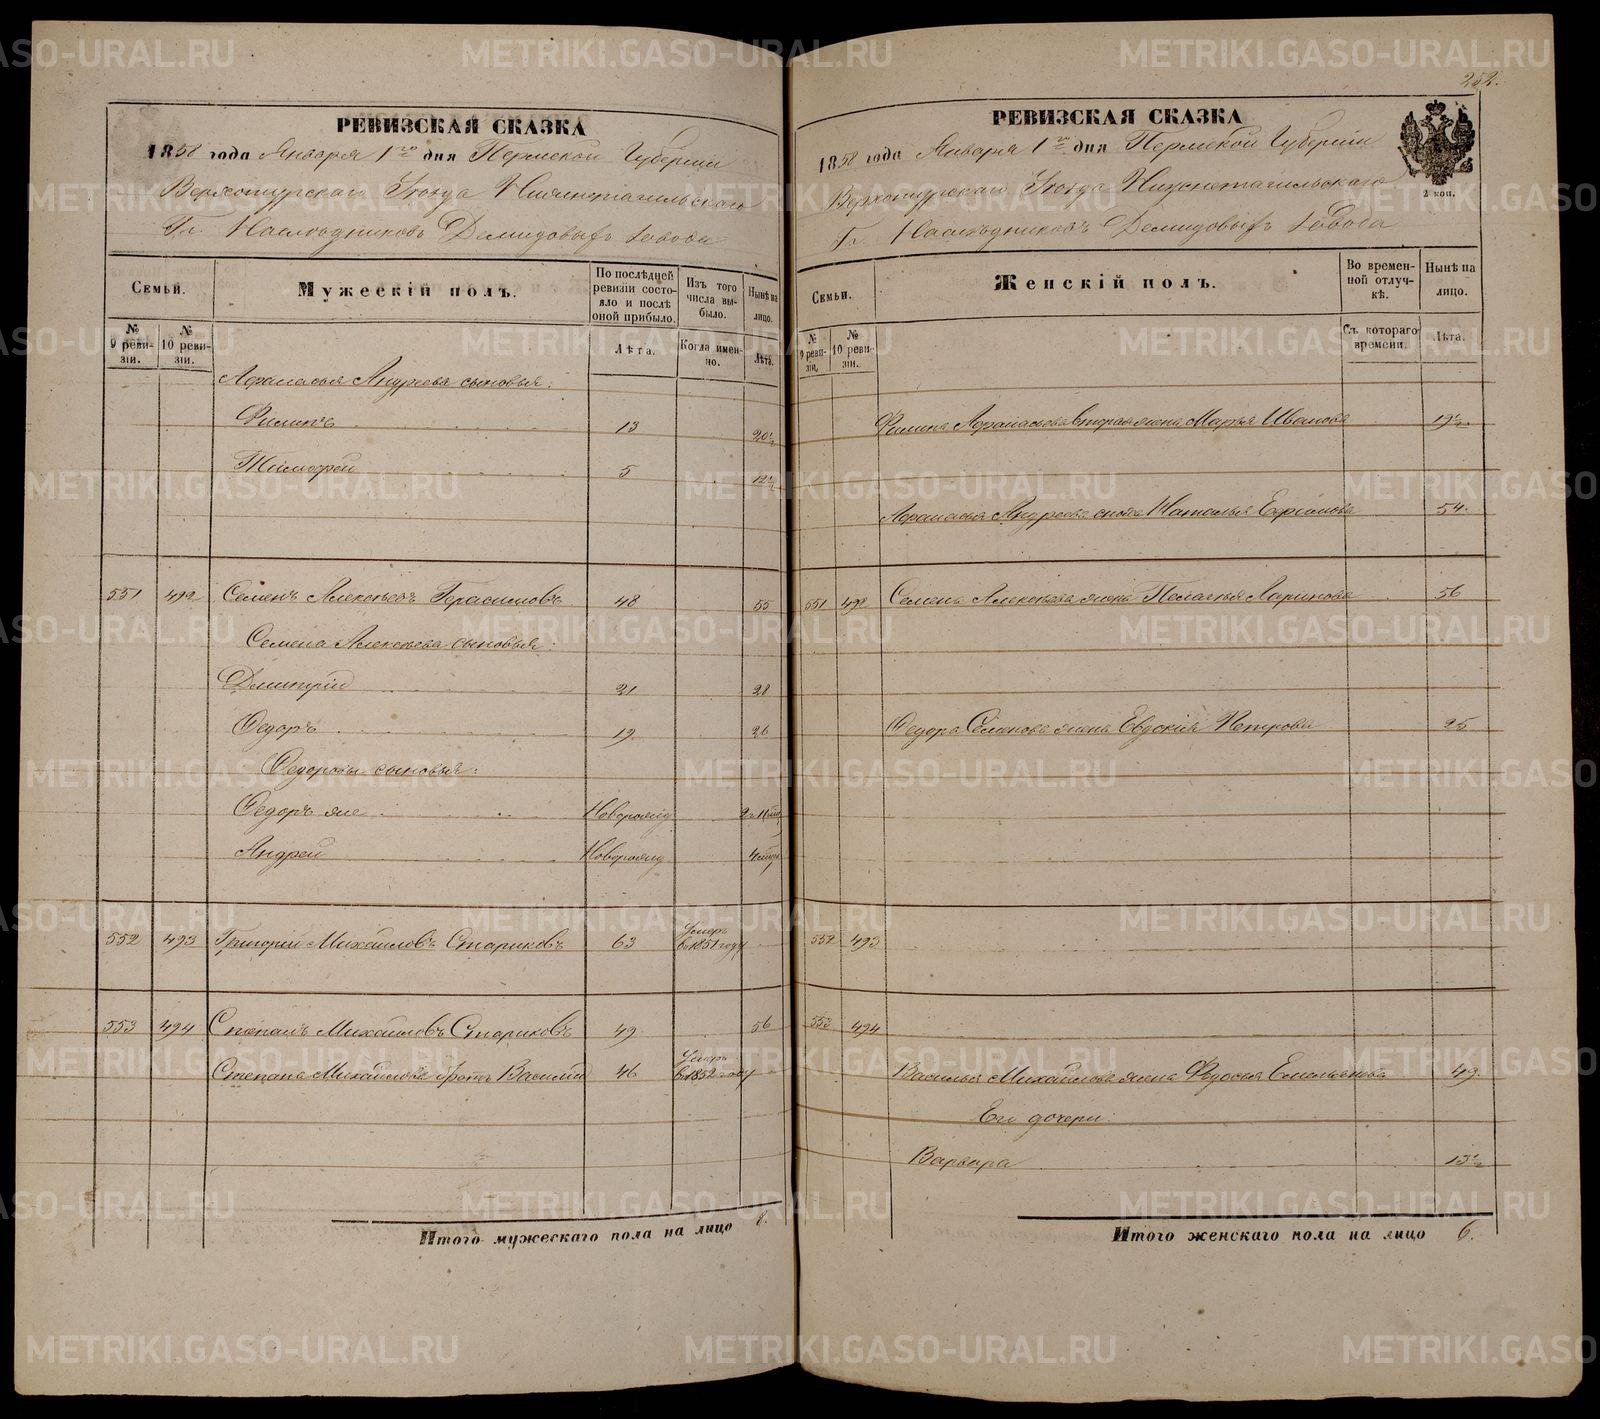 252.
РЕВИЗСКАЯ СКАЗКА
1858 года Января 1го дня Пермской Губерніи
Верхотурскаго Уѣзда Нижнетагильскаго
Гг. Наслѣдниковъ Демидовыхъ Завода
Семьи.
Мужескій полъ.
По послѣдней ревизіи состояло и послѣ оной прибыло.
Изъ того числа выбыло.
Нынѣ на лицо.
№ 9 ревизіи.
№ 10 ревизіи.
Лѣта.
Когда именно.
Лѣта.
Афанасья Андреева сыновья:
Филипъ 13 20½
Тимофей 5 12½
551 492 Семенъ Алексѣевъ Герасимовъ 48 55
Семена Алексѣева сыновья:
Дмитрій 21 28
Федоръ 19 26
Федоровы сыновья:
Федоръ же Новорожд
Андрей Новорожд
552 493 Григорій Михайловъ Стариковъ 63 Умеръ в 1851 году
553 494 Степанъ Михайловъ Стариковъ 49 56
Степана Михайлова братъ Василій 46 Умеръ в 1852 году
Итого мужескаго пола на лицо 8.
РЕВИЗСКАЯ СКАЗКА
1858 года Января 1го дня Пермской Губерніи
Верхотурскаго Уѣзда Нижнетагильскаго
Гг. Наслѣдниковъ Демидовыхъ Завода
2 коп.
Семьи.
Женскій полъ.
Во временной отлучкѣ.
Нынѣ на лицо.
№ 9 ревизіи.
№ 10 ревизіи.
Съ котораго времени.
Лѣта.
Филипа Афанасьева вторая жена Марья Иванова 19½
Афанасья Андреева Наталья Ефимова 54
551 492 Семена Алексѣева жена Пелагья Ларионова 56
Федора Семенова жена Евдокія Петрова 25
552 493
553 494
Василья Михайлова жена Федосья Емельянова 49
Его дочери:
Варвара 13½
Итого женскаго пола на лицо 6.
METRIKI.GASO-URAL.RU